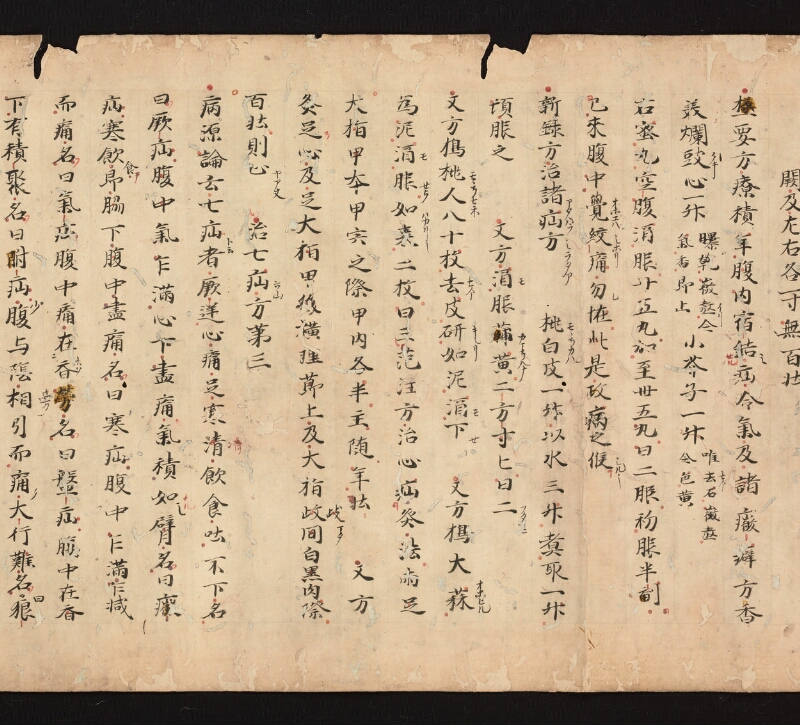 闕及左右各一寸無百壮
極要方療積年腹内宿結疝冷氣及諸癥癖方香
美爛豉心一升 曝乾微熬令氣香即止 小芥子一升 唯去石微熬令色黄
右蜜丸空腹酒服廾五丸加至卅五丸日二服初服半劑
已來腹中覺絞痛勿恠此是政病之候
新録方治諸疝方 桃白皮一升以水三升煮取一升
頓服之 又方酒服蒲黄二方寸匕日二
又方搗桃人八十枚去皮研如泥酒下 又方搗大蒜
為泥酒服如棗二枚日三 范汪方治心疝灸法兩足
大指甲本甲完之際甲内各半主随年壮 又方
灸足心及足大指甲後横理節上及大指歧間白黒肉際
百壮則止 治七疝方第三
病源論云七疝者厥逆心痛足寒清飲食吐不下名
曰厥疝腹中氣乍滿心下盡痛氣積如臂名曰瘕
疝寒飲食即脇下腹中盡痛名曰寒疝腹中乍滿乍减
而痛名曰氣疝腹中痛在齊旁名曰盤疝腹中在齊
下有積聚名曰胕疝腹与陰相引而痛大行難名曰狼